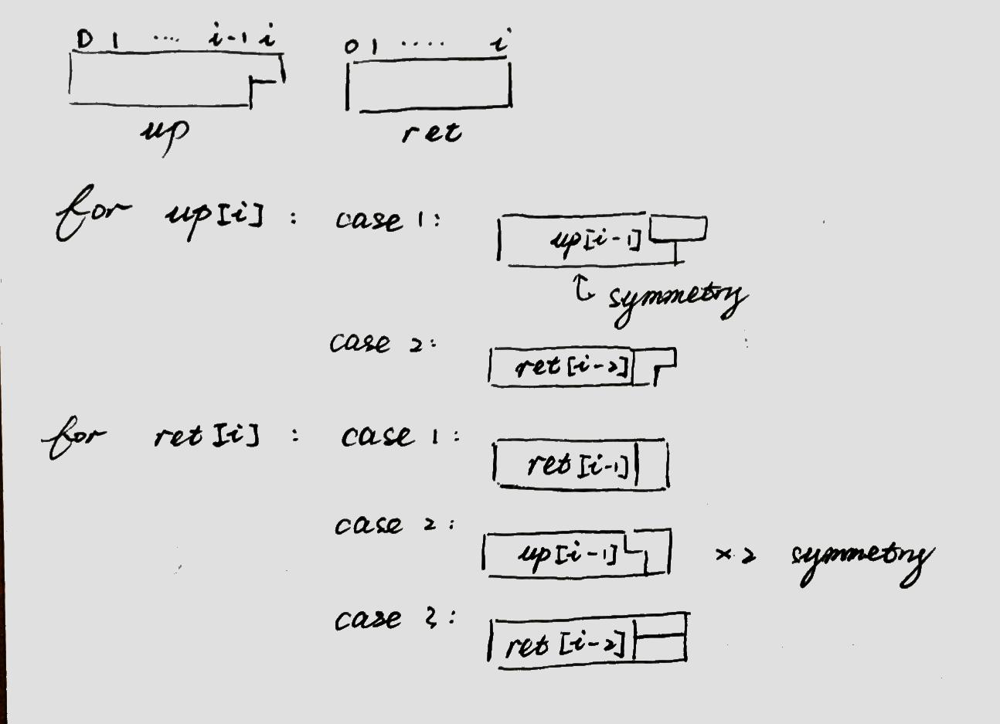 0 1 .... i-1 i 0 1 .... i
up ret
for up[i] : case 1: up[i-1]
symmetry
case 2: ret[i-2]
for ret[i] : case 1: ret[i-1]
case 2: up[i-1] × 2 symmetry
case 3: ret[i-2]